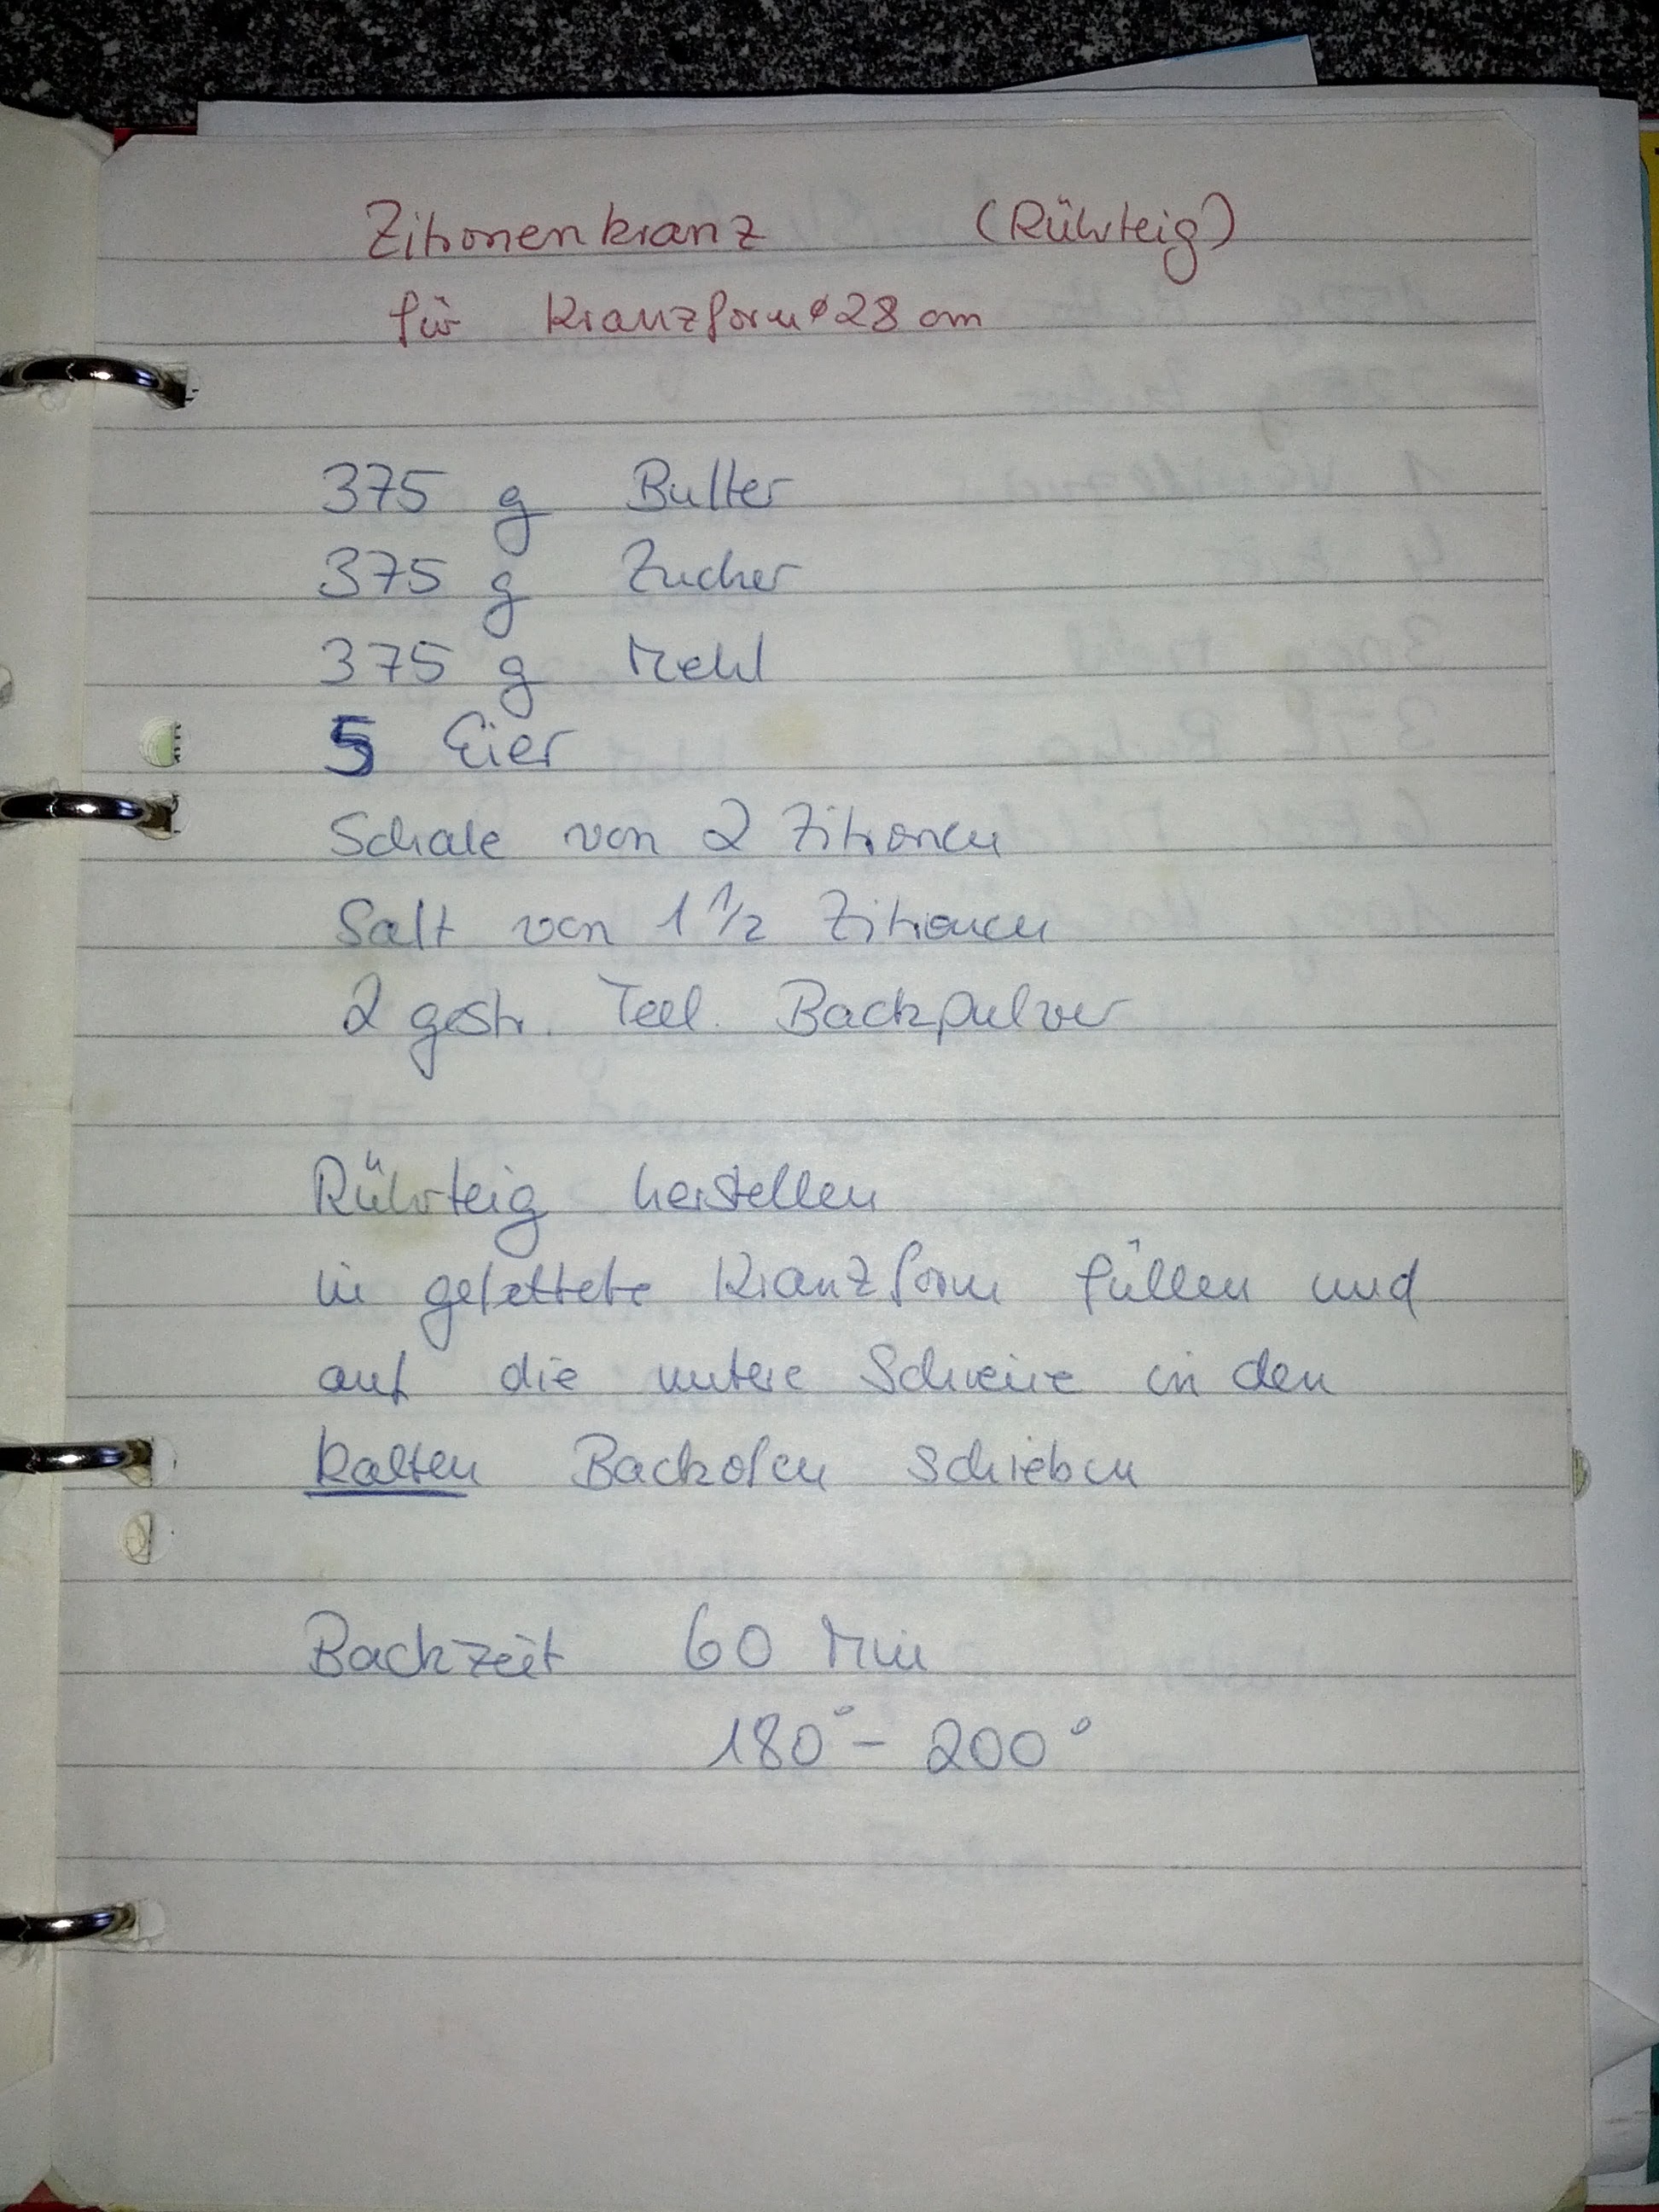 Zitronenkranz (Rührteig)
für Kranzform ø 28 cm
375 g Butter
375 g Zucker
375 g Mehl
5 Eier
Schale von 2 Zitronen
Saft von 1 1/2 Zitronen
2 gestr. Teel. Backpulver
Rührteig herstellen
in gefettete Kranzform füllen und
auf die untere Schiene in den
kalten Backofen schieben
Backzeit 60 Min
180° - 200°